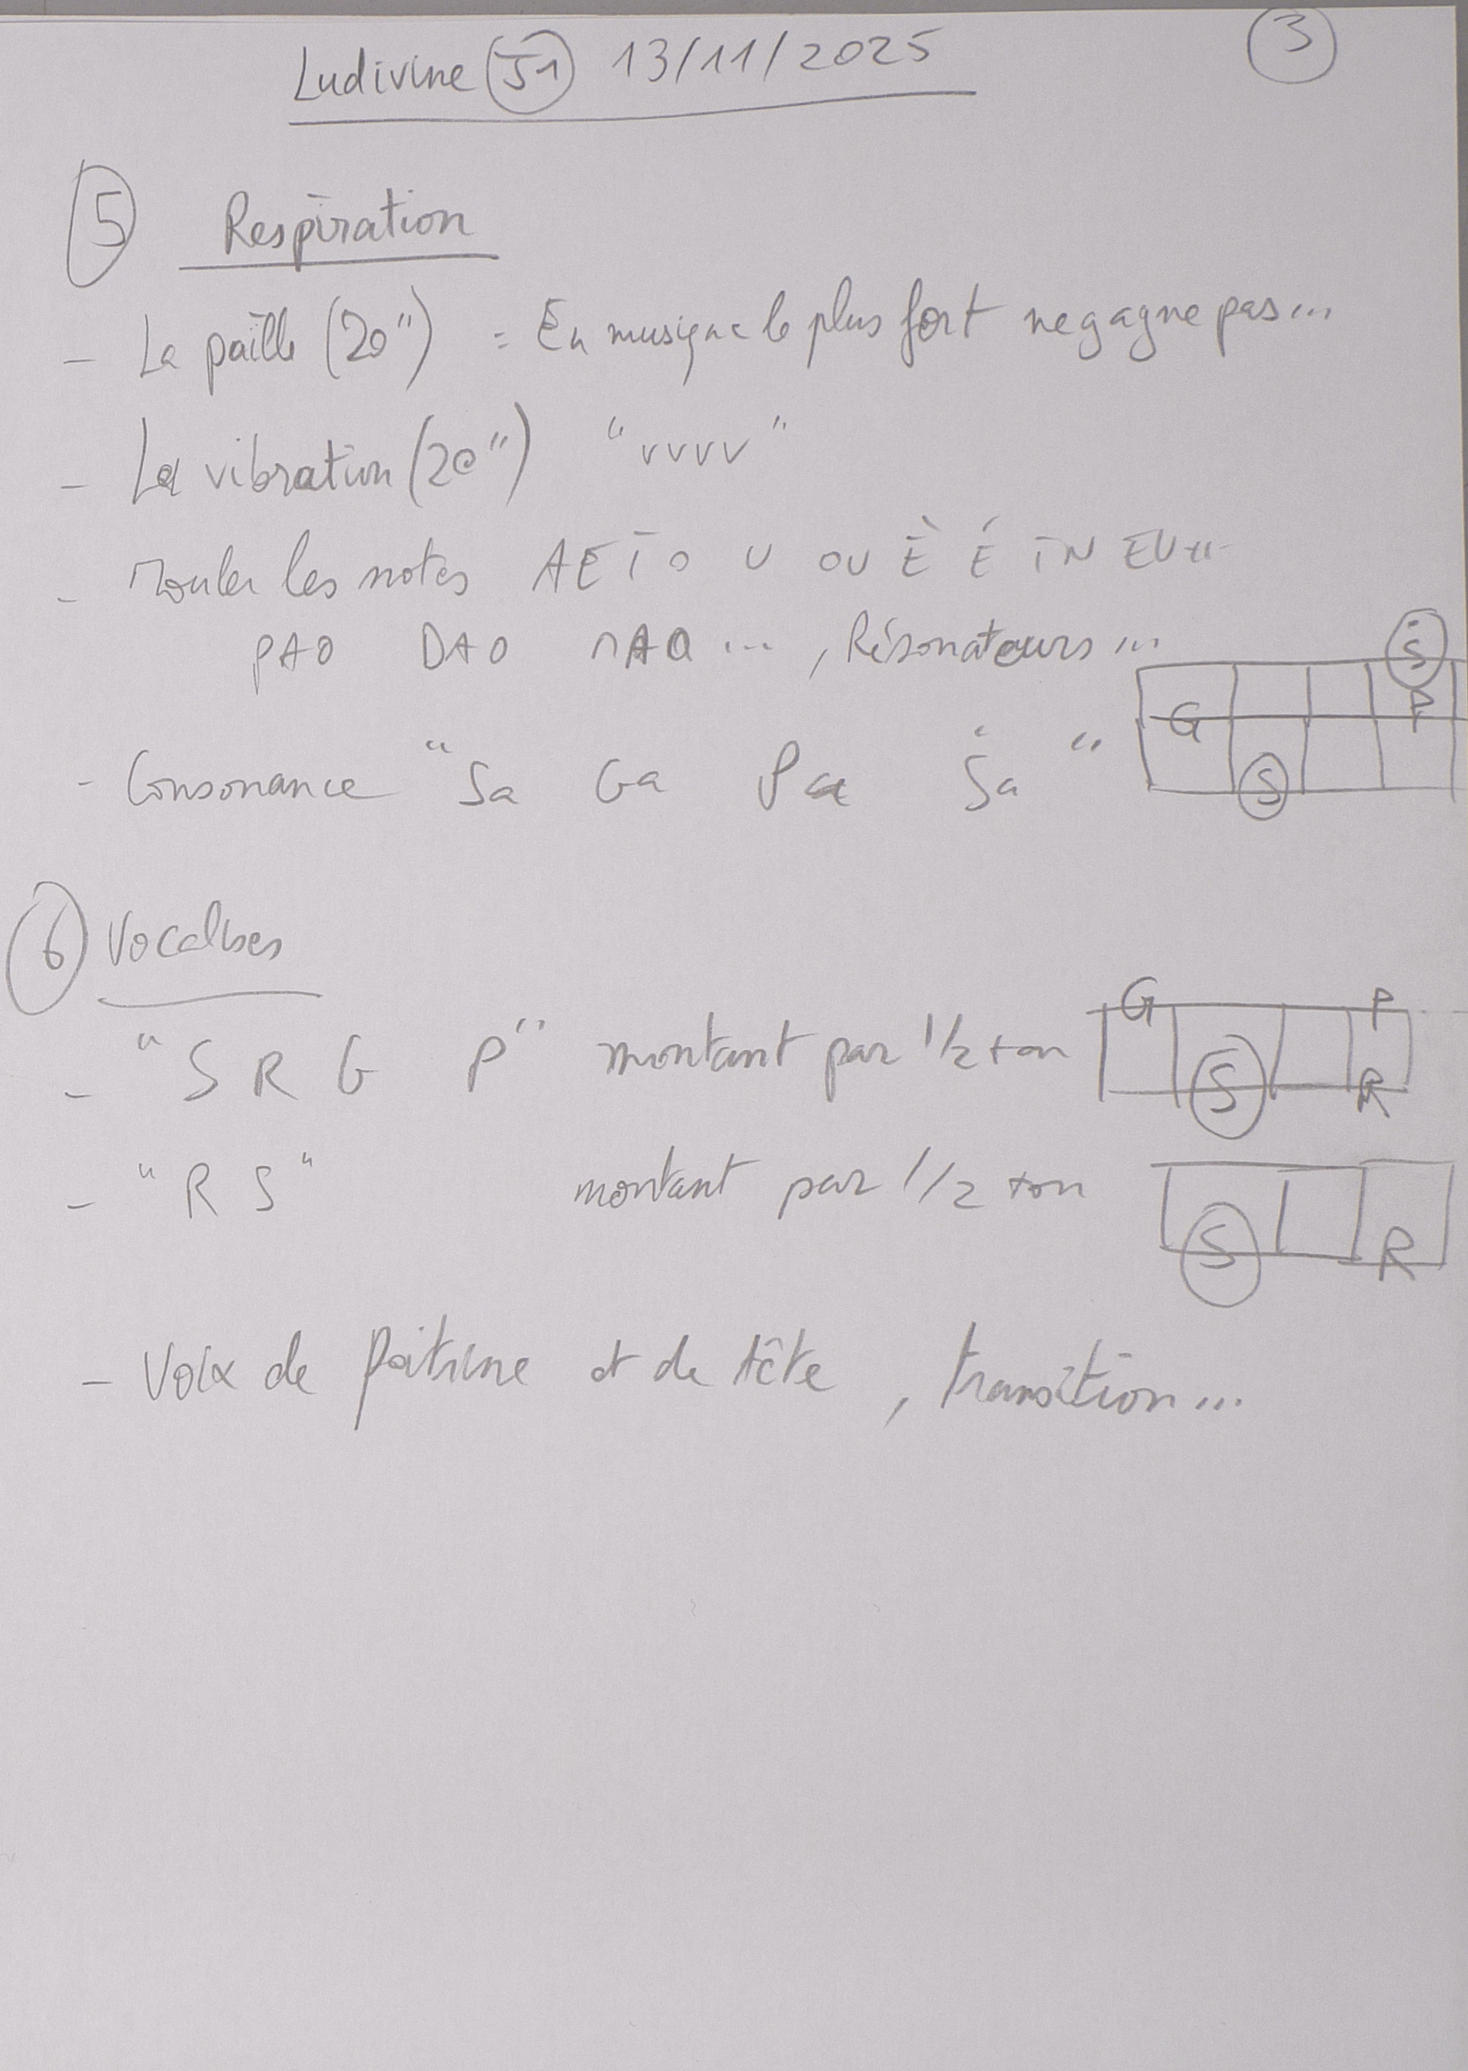 Ludivine J1 13/11/2025
3
5 Respiration
- La paille (20") = En musique le plus fort ne gagne pas...
- La vibration (20") "vvvv"
- rouler les notes A E I O U OU È É IN EU...
PAO DAO MAO..., Résonateurs...
- Consonance "Sa Ga Pa Ṡa"
Ṡ
G P
S
6 Vocalises
- "S R G P" montant par 1/2 ton
G P
S R
- "R S" montant par 1/2 ton
S R
- Voix de Poitrine et de tête, transition...